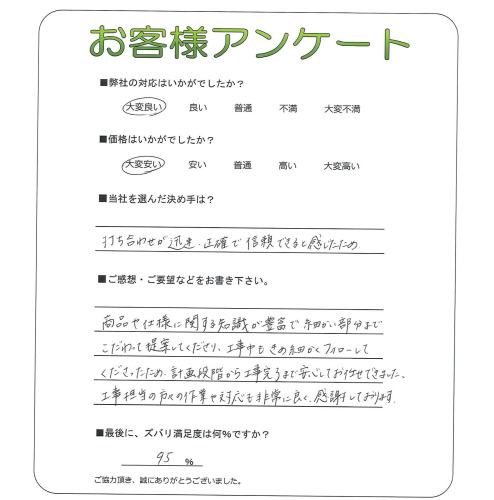 お客様アンケート
■弊社の対応はいかがでしたか？
大変良い 良い 普通 不満 大変不満
■価格はいかがでしたか？
大変安い 安い 普通 高い 大変高い
■当社を選んだ決め手は？
打ち合わせが迅速、正確で信頼できると感じたため
■ご感想・ご要望などをお書き下さい。
商品や仕様に関する知識が豊富で細かい部分まで
こだわって提案してくださり、工事中もきめ細かくフォローして
くださったため、計画段階から工事完了まで安心してお任せできました。
工事担当の方々の作業や対応も非常に良く、感謝しております。
■最後に、ズバリ満足度は何％ですか？
95 ％
ご協力頂き、誠にありがとうございました。